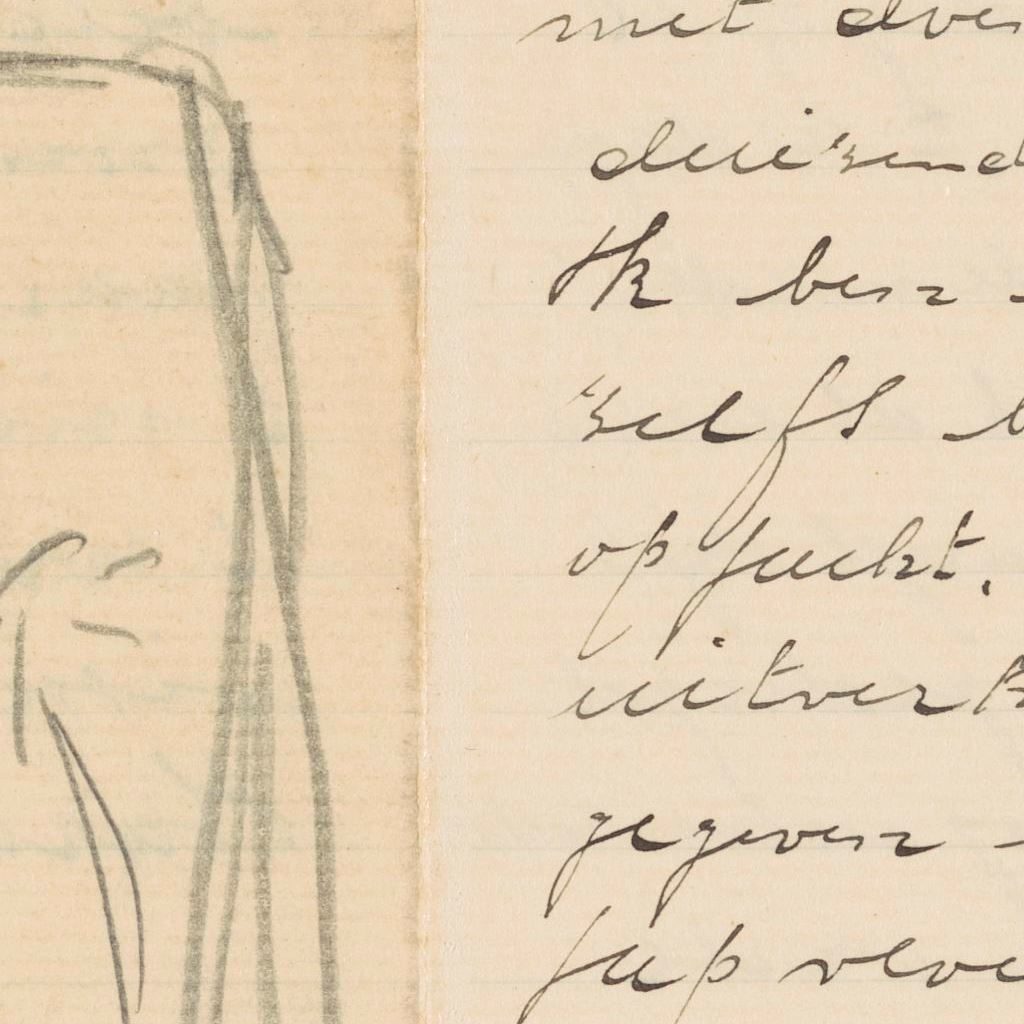 met
duizend
Ik ben
zelfs
op jackt.
uitverk
gegeven
Jap